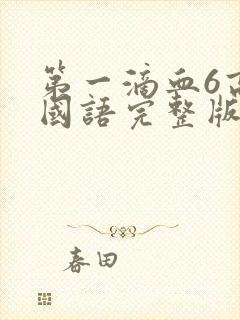 第一滴血6高
國語完整版
春田